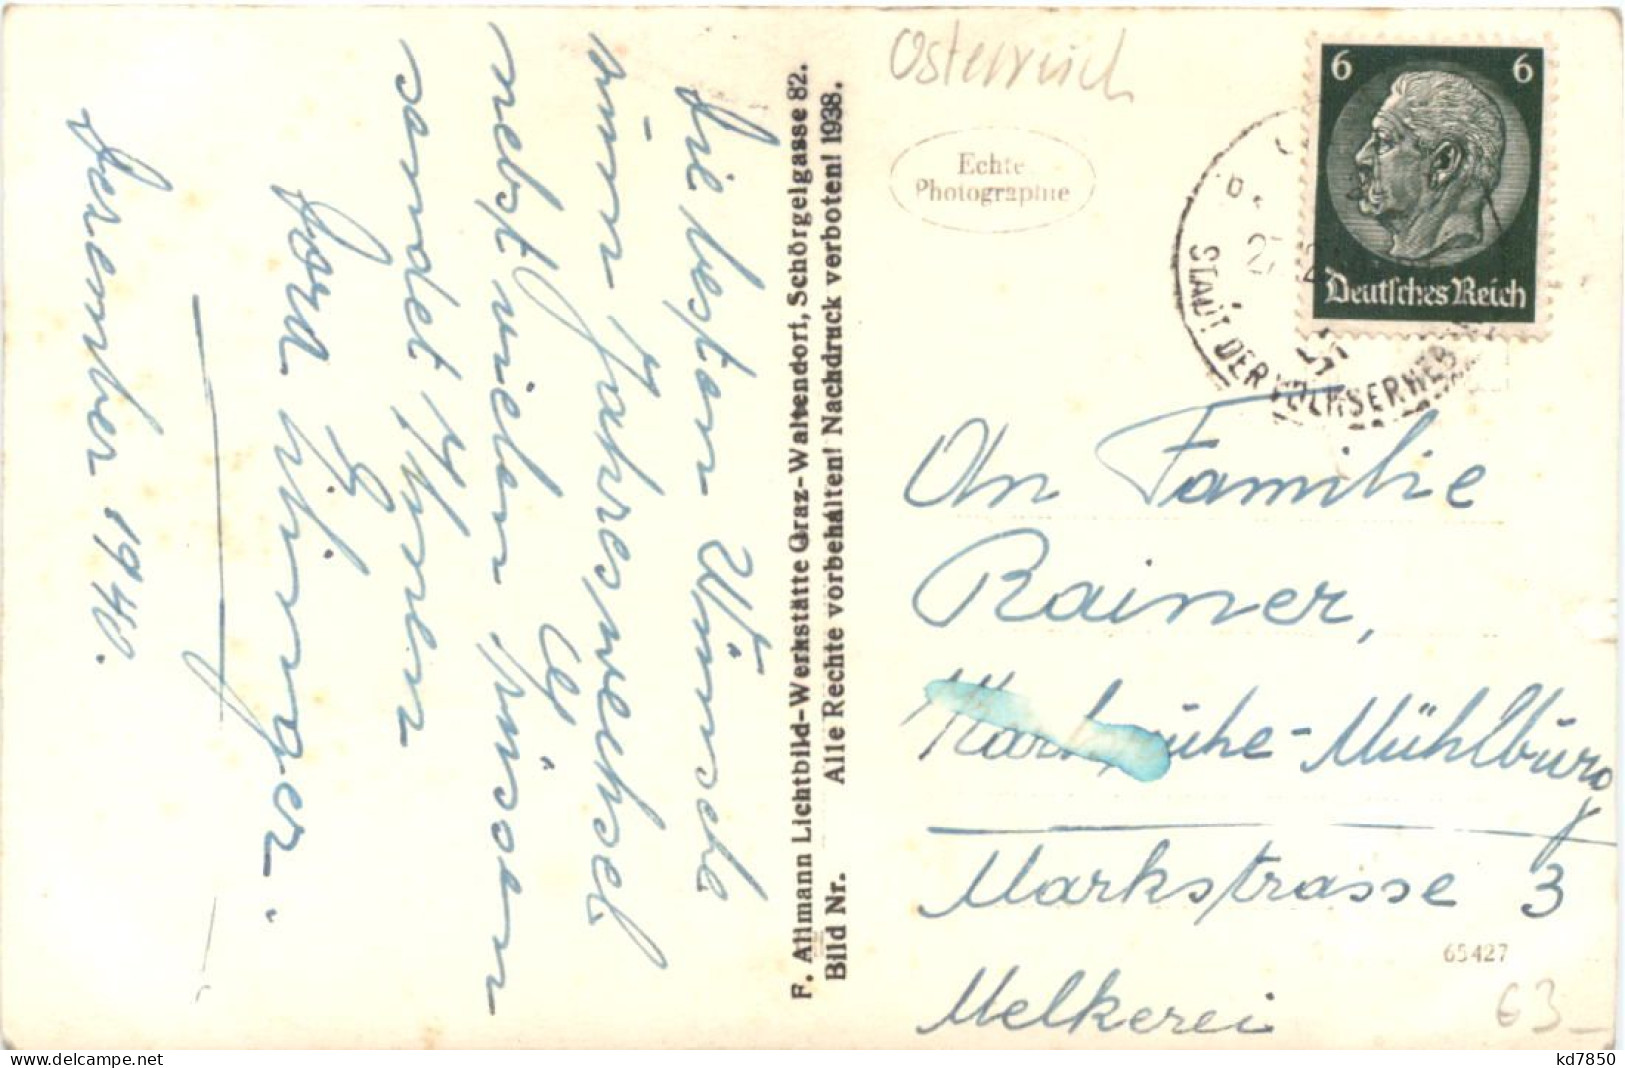 Die besten Wünsche
zum Jahreswechsel
nebst vielen Grüssen
sendet Ihnen
Dezember 1940.
F. Allmann Lichtbild-Werkstätte Graz-Waltendorf, Schörgelgasse 82.
Bild Nr. Alle Rechte vorbehalten! Nachdruck verboten! 1938.
Österreich
Echte
Photographie
6 6
Deutsches Reich
27.12
STADT DER VOLKSERHEB
An Familie
Rainer,
Karlsruhe-Mühlburg
Markstrasse 3
Melkerei
65427
63
www.delcampe.net
kd7850